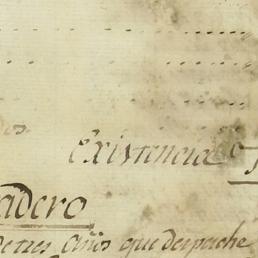 existencia
adero
de tres años que despache